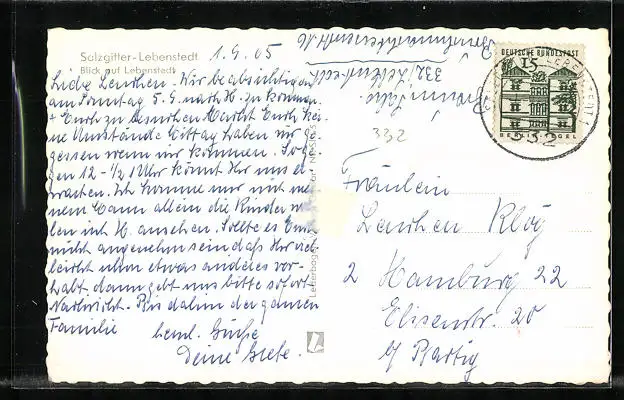 Salzgitter-Lebenstedt
Blick auf Lebenstedt
1.9.65
Liebe Lenchen. Wir beabsichtigen
am Sonntag 5.9. nach H. zu kommen
+ Euch zu besuchen. Macht Euch kei
ne Umstände Mittag haben wir ge
gessen wenn wir kommen. So ge
gen 12-½1 Uhr könnt Ihr uns er
warten. Ich komme nur mit mei
nem Mann allein die Kinder wol
len sich H. ansehen. Sollte es Euch
nicht angenehm sein daß Ihr viel
leicht schon etwas anderes vor
habt dann gebt uns bitte sofort
Nachricht. Bis dahin der ganzen
Familie herzl. Grüße
Deine Grete.
332
DEUTSCHE BUNDESPOST
15
BERLIN-TEGEL
332
Fräulein
Lenchen Klög
2 Hamburg 22
Elisenstr. 20
b/ Partig